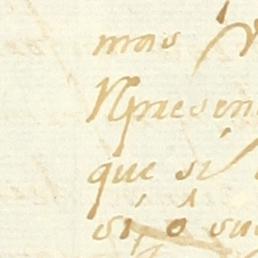 mas
Represen
que si
si ó su